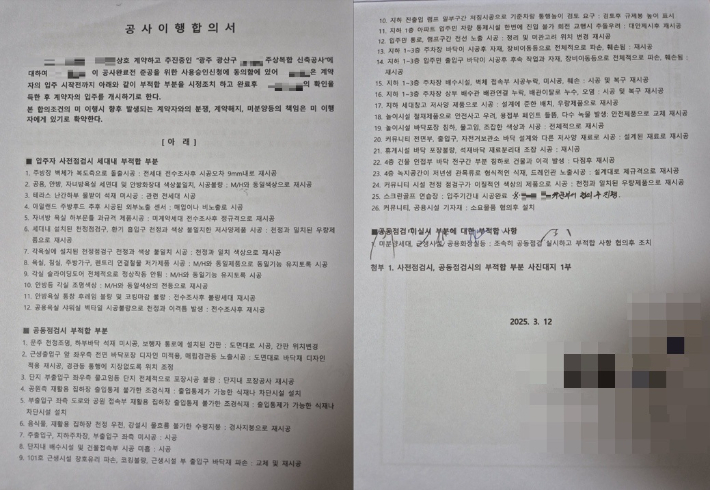 공 사 이 행 합 의 서
상호 계약하고 추진중인 "광주 광산구 주상복합 신축공사"에
대하여 이 공사완료전 준공을 위한 사용승인신청에 동의함에 있어 은 계약
자의 입주 시작전까지 아래와 같이 부적합 부분을 시정조치 하고 완료후 의 확인을
득한 후 계약자의 입주를 개시하기로 한다.
본 합의조건의 미 이행시 향후 발생되는 계약자와의 분쟁, 계약해지, 미분양등의 책임은 미 이행
자에게 있기로 확약한다.
[ 아 래 ]
■ 입주자 사전점검시 세대내 부적합 부분
1. 주방장 벽체가 복도측으로 돌출시공 : 전세대 전수조사후 시공오차 9mm내로 재시공
2. 공용, 안방, 자녀방욕실 세면대 및 안방화장대 색상불일치, 시공불량 : M/H와 동일색상으로 재시공
3. 테라스 난간하부 물받이 석재 미시공 : 관련 전세대 시공
4. 아일랜드 주방후드 추후 시공된 외부노출 센서 : 매립이나 비노출로 시공
5. 자녀방 욕실 하부문틀 과규격 제품시공 : 미계약세대 전수조사후 정규격으로 재시공
6. 세대내 설치된 천정점검구, 환기 흡입구 천정과 색상 불일치한 저사양제품 시공 : 천정과 일치된 우량제
품으로 재시공
7. 각욕실에 설치된 천정점검구 천정과 색상 불일치 시공 : 천정과 일치 색상으로 재시공
8. 욕실, 침실, 주방가구, 팬트리 연결철물 저가제품 시공 : M/H와 동일제품으로 동일기능 유지토록 시공
9. 각실 슬라이딩도어 전체적으로 정상작동 안됨 : M/H와 동일기능 유지토록 시공
10. 안방등 각실 조명색상 : M/H와 동일색상의 전등으로 재시공
11. 안방욕실 통창 후레임 불량 및 코킹마감 불량 : 전수조사후 불량세대 재시공
12. 공용욕실 샤워실 벽타일 시공불량으로 천정과 이격틈 발생 : 전수조사후 재시공
■ 공동점검시 부적합 부분
1. 문주 천정조명, 하부바닥 석재 미시공, 보행자 통로에 설치된 간판 : 도면대로 시공, 간판 위치변경
2. 근생출입구 앞 좌우측 전면 바닥포장 디자인 미적용, 매립경관등 노출시공 : 도면대로 바닥재 디자인
적용 재시공, 경관등 통행에 지장없도록 위치 조정
3. 단지 부출입구 좌우측 물고임등 단지 전체적으로 포장시공 불량 : 단지내 포장공사 재시공
4. 공원측 재활용 집하장 출입통제 불가한 조경식재 : 출입통제가 가능한 식재나 차단시설 설치
5. 부출입구 좌측 도로와 공원 접속부 재활용 집하장 출입통제 불가한 조경식재 : 출입통제가 가능한 식재나
차단시설 설치
6. 음식물, 재활용 집하장 천정 우천, 강설시 물흐름 불가한 수평지붕 : 경사지붕으로 재시공
7. 주출입구, 지하주차장, 부출입구 좌측 미시공 : 시공
8. 단지내 배수시설 및 건물접속부 시공 미흡 : 시공
9. 101호 근생시설 장호유리 파손, 코킹불량, 근생시설 부 출입구 바닥재 파손 : 교체 및 재시공
10. 지하 진출입 램프 일부구간 처짐시공으로 기준치량 통행높이 검토 요구 : 검토후 규제봉 높이 표시
11. 지하 1층 아파트 입주민 차량 통제시설 한번에 진입 불가 회전 교행시 추돌우려 : 대안제시후 재시공
12. 입주민 통로, 램프구간 전선 노출 시공 : 정리 및 미관고려 위치 변경 재시공
13. 지하 1~3층 주차장 바닥미 시공후 자재, 장비이동등으로 전체적으로 파손, 훼손됨 : 재시공
14. 지하 1~3층 입주민 출입구 바닥이 시공후 후속 작업과 자재, 장비이동등으로 전체적으로 파손, 훼손됨 :
재시공
15. 지하 1~3층 주차장 배수시설, 벽체 접속부 시공누락, 미시공, 훼손 : 시공 및 복구 재시공
16. 지하 1~3층 주차장 상부 배수관 배관연결 누락, 배관이탈로 누수, 오염 : 시공 및 복구 재시공
17. 지하 세대창고 저사양 제품으로 시공 : 설계에 준한 배치, 우량제품으로 재시공
18. 놀이시설 철재제품으로 안전사고 우려, 용접부 페인트 들뜸, 다수 녹물 발생: 안전제품으로 교체 재시공
19. 놀이시설 바닥포장 침하, 물고임, 조잡한 색상과 시공 : 전체적으로 재시공
20. 커뮤니티 전면부, 출입구, 자전거보관소 바닥 설계와 다른 저사양 재료로 시공 : 설계된 재료로 재시공
21. 휴게시설 바닥 포장불량, 석재바닥 재료분리대 조장 시공 : 재시공
22. 4층 건물 인접부 바닥 전구간 부분 침하로 건물과 이격 발생 : 다짐후 재시공
23. 4층 녹지공간이 저년생 관목류로 형식적인 식재, 드레인핀 노출시공 : 설계대로 제규격으로 재시공
24. 커뮤니티 시설 천정 점검구가 이질적인 색상의 제품으로 시공 : 천정과 일치된 우량제품으로 재시공
25. 스크린골프 연습장 : 입주기간내 시공완료
26. 커뮤니티, 공용시설 기자재 : 소요물품 협의후 설치
■공동점검 미실시 부분에 대한 부적합 사항
1. 미분양세대, 근생시설, 공용화장실등 : 조속히 공동점검 실시하고 부적합 사항 협의후 조치
첨부 1. 사전점검시, 공동점검시의 부적합 부분 사진대지 1부
2025. 3. 12